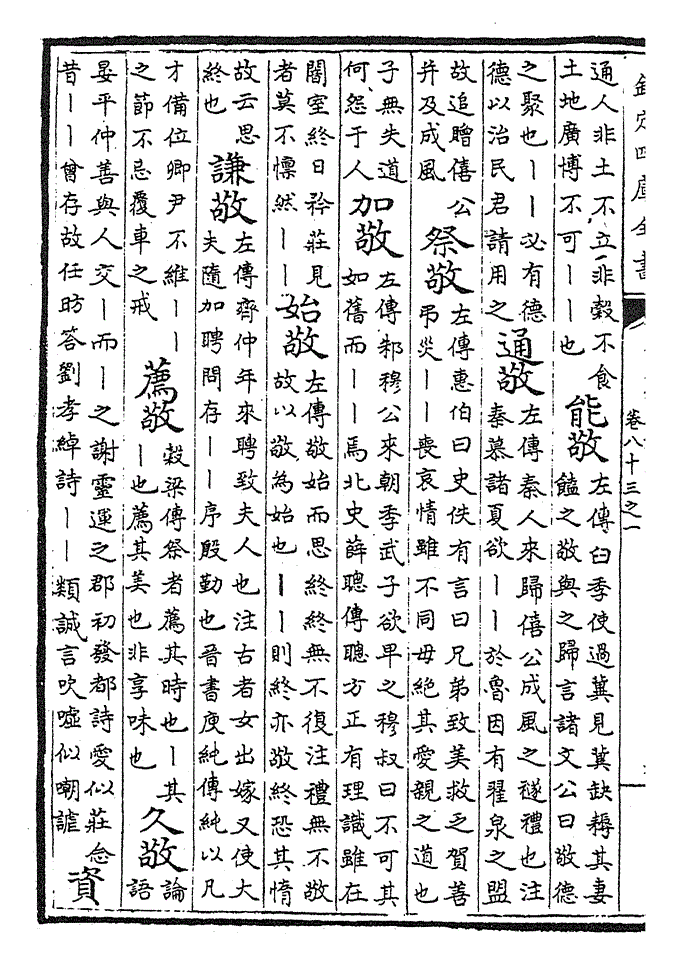 欽定四庫全書
卷八十三之一
通人非土不立非穀不食
土地廣博不可——也
能敬
左傳臼季使過冀見冀缺耨其妻
饁之敬與之歸言諸文公曰敬德
之聚也——必有德
德以治民君請用之
通敬
左傳秦人來歸僖公成風之襚禮也注
秦慕諸夏欲——於魯因有翟泉之盟
故追贈僖公
并及成風
祭敬
左傳惠伯曰史佚有言曰兄弟致美救乏賀善
弔災——喪哀情雖不同毋絶其愛親之道也
子無失道
何怨于人
加敬
左傳邾穆公來朝季武子欲卑之穆叔曰不可其
如舊而——焉北史薛聰傳聰方正有理識雖在
闇室終日矜莊見
者莫不懍然——
始敬
左傳敬始而思終終無不復注禮無不敬
故以敬為始也——則終亦敬終恐其惰
故云思
終也
謙敬
左傳齊仲年來聘致夫人也注古者女出嫁又使大
夫隨加聘問存——序殷勤也晉書庾純傳純以凡
才備位卿尹不維——
之節不忌覆車之戒
薦敬
穀梁傳祭者薦其時也—其
—也薦其美也非享味也
久敬
論
語
晏平仲善與人交—而—之謝靈運之郡初發都詩愛似莊念
昔——曾存故任昉答劉孝綽詩——類誠言吹噓似嘲謔
資